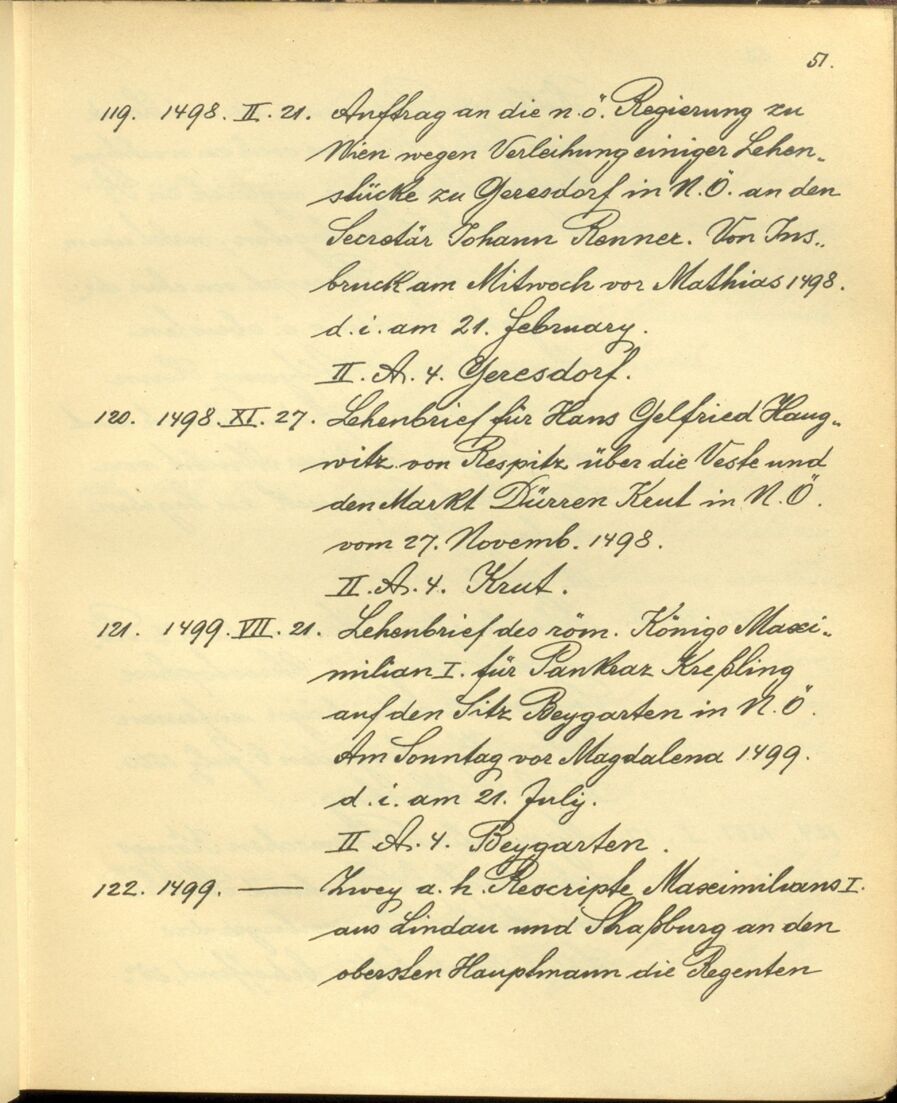 51.
119. 1498. II. 21. Auftrag an die n. ö. Regierung zu
Wien wegen Verleihung einiger Lehen„
stücke zu Geresdorf in N. Ö. an den
Secretär Johann Renner. Von Ins„
bruck am Mitwoch vor Mathias 1498.
d. i. am 21. February.
II. A. 4. Geresdorf.
120. 1498. XI. 27. Lehenbrief für Hans Gelfried Haug„
witz von Respitz über die Veste und
den Markt Dürren Krut in N. Ö.
vom 27. Novemb. 1498.
II. A. 4. Krut.
121. 1499. VII. 21. Lehenbrief des röm. Königs Maxi„
milian I. für Pankraz Kreßling
auf den Sitz Beygarten in N. Ö.
Am Sonntag vor Magdalena 1499.
d. i. am 21. July.
II A. 4. Beygarten.
122. 1499. — Zwey a. h. Rescripte Maximilians I.
aus Lindau und Straßburg an den
obersten Hauptmann die Regenten